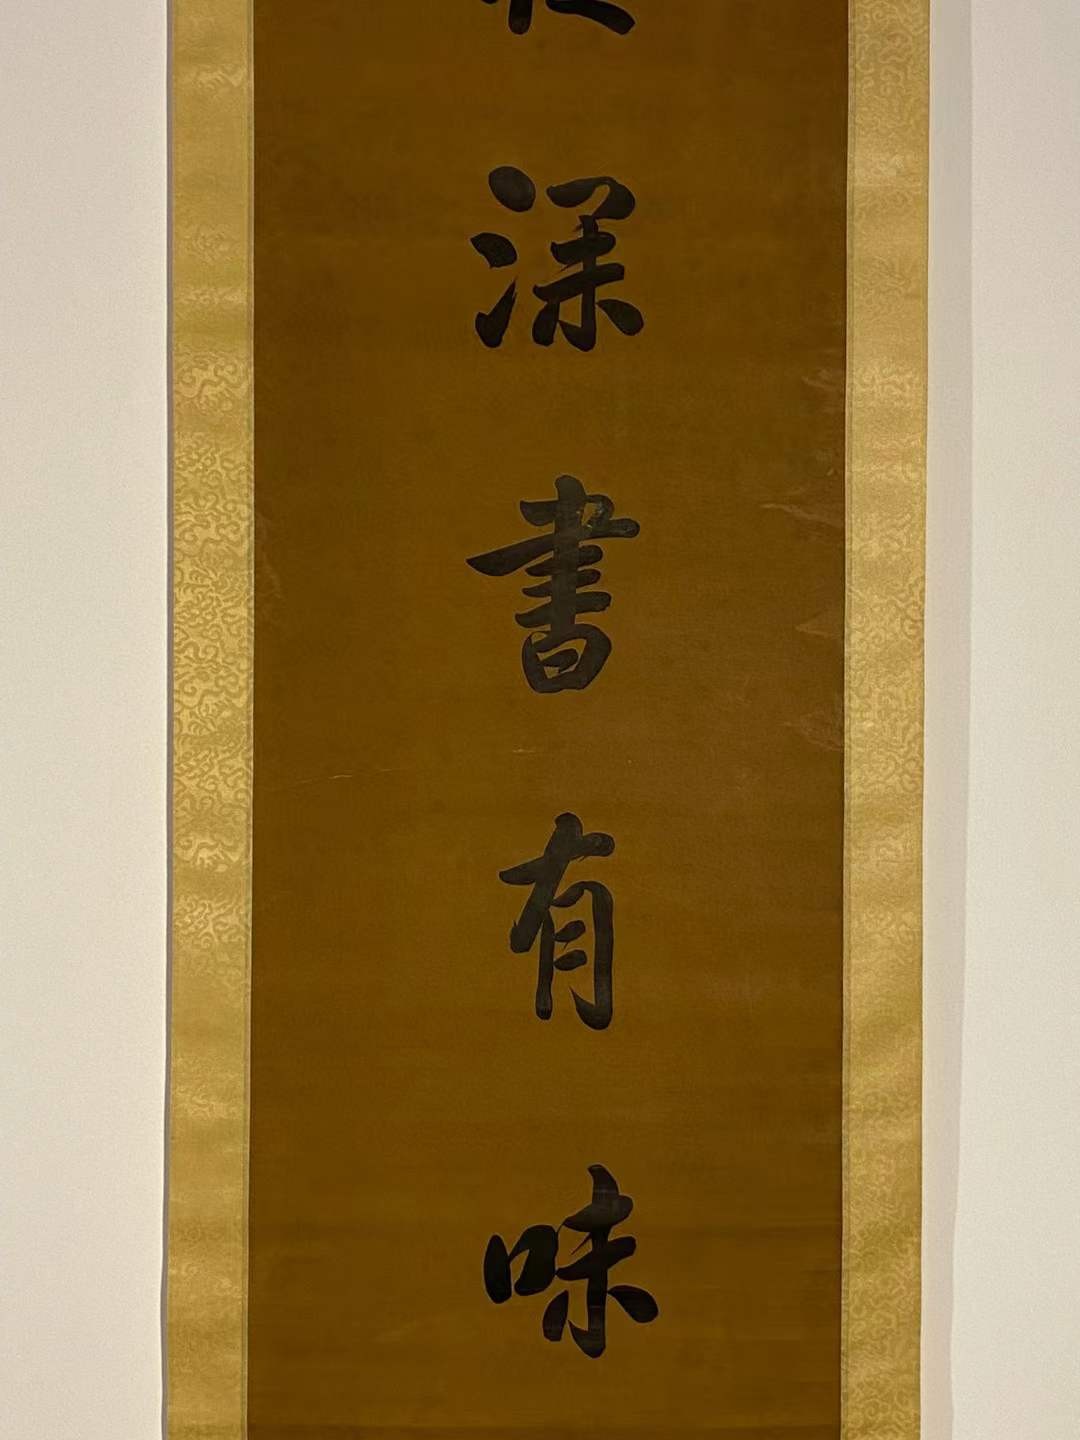 深書有味